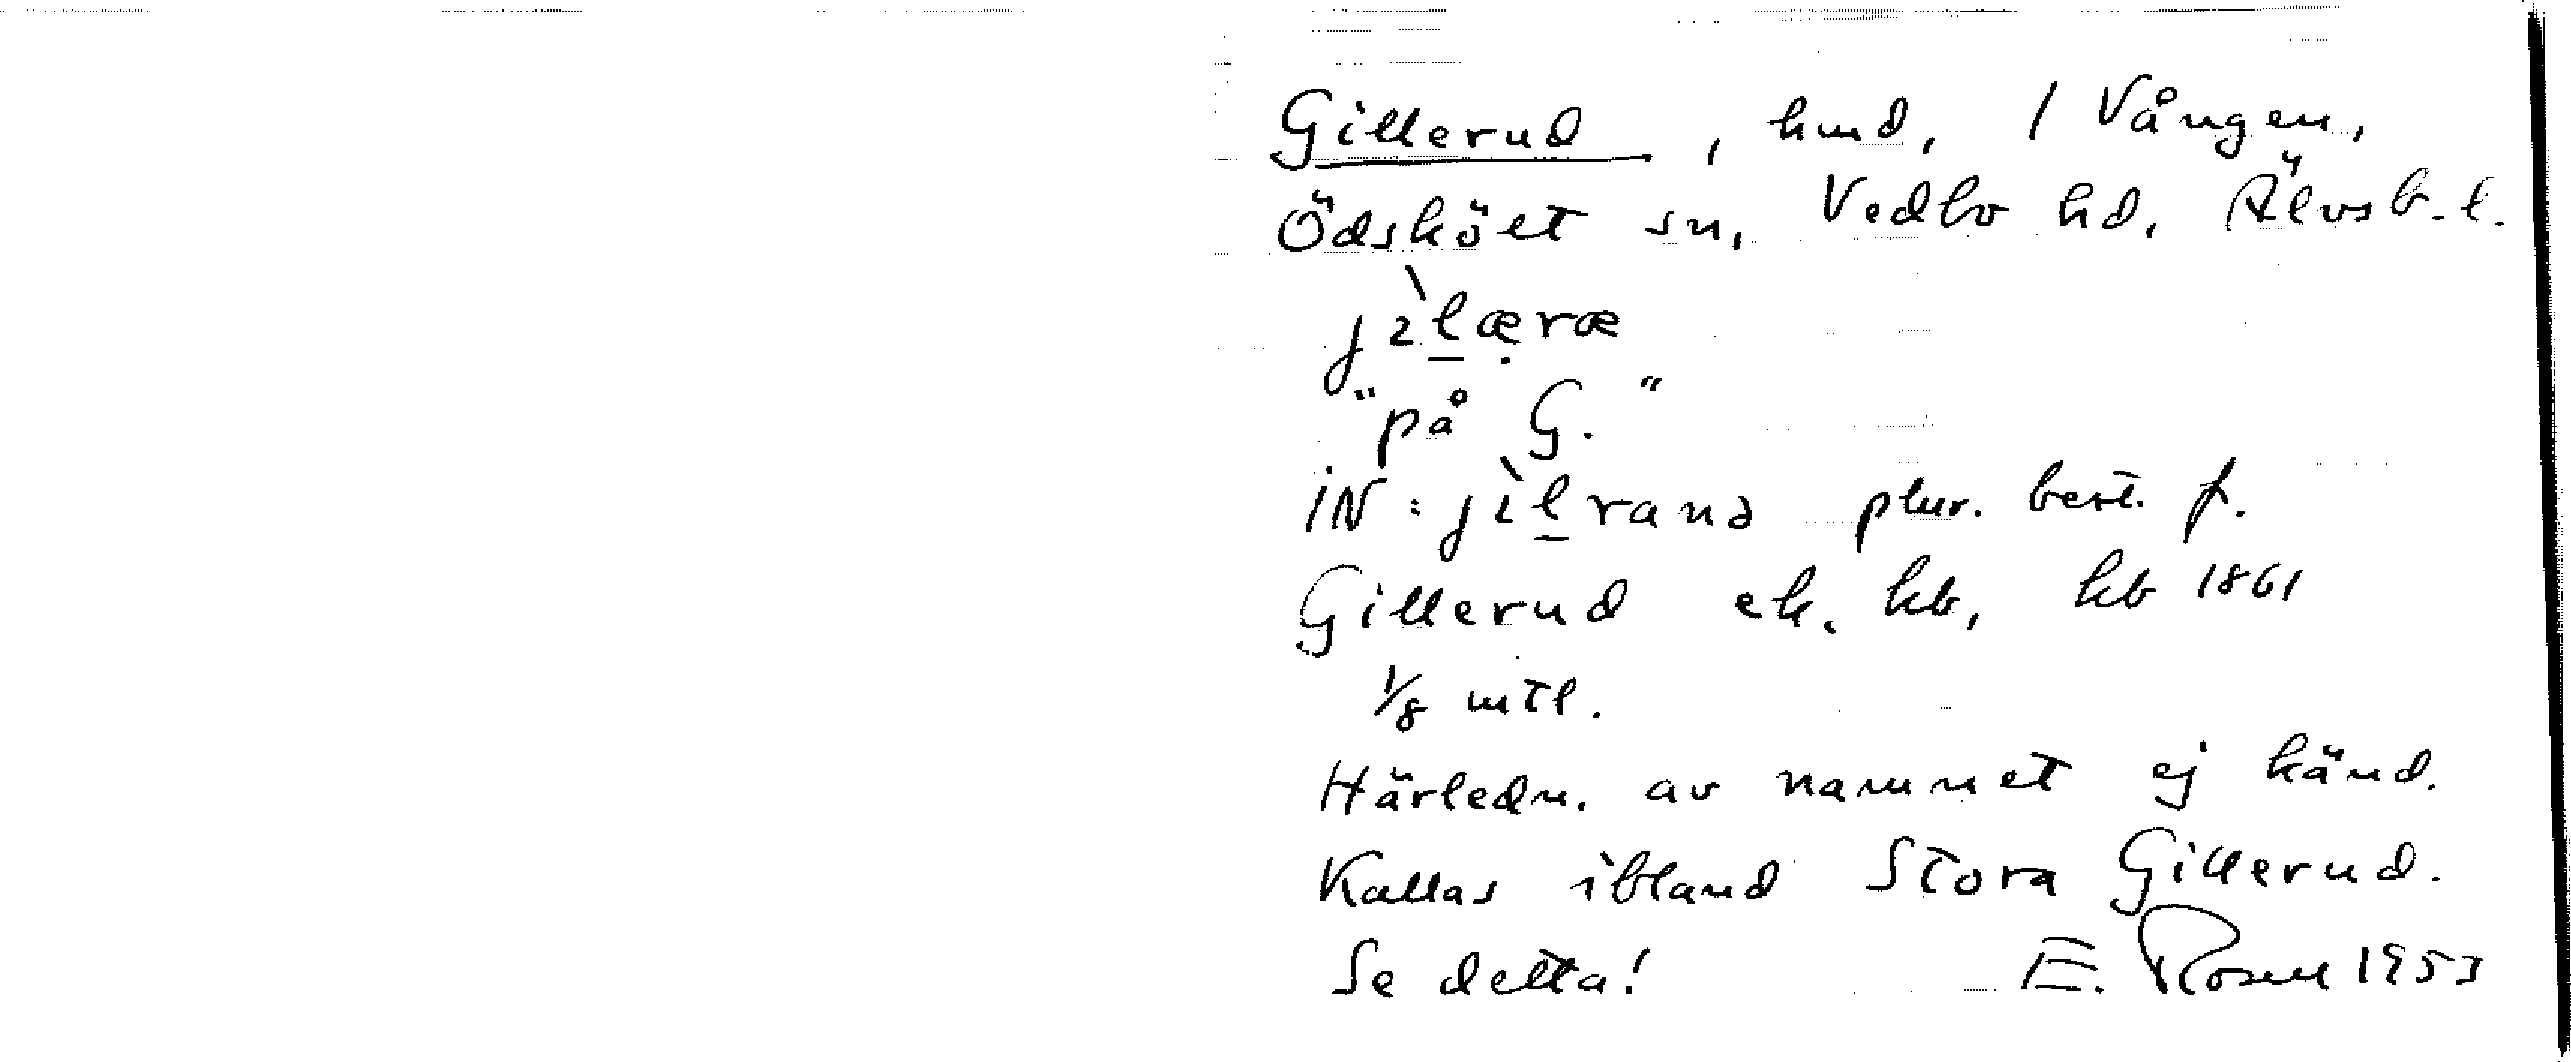 Gillerud, hmd, 1 Vången,
Ödsköet sn, Vedbo hd, Älvsb. l.
jìl̲æ̣ræ
"på G."
iN: jìl̲ranə plur. best. f.
Gillerud ek. kb, kb 1861
1/8 mtl.
Härledn. av namnet ej känd.
Kallas ibland Stora Gillerud.
Se detta! E. Rosell 1953